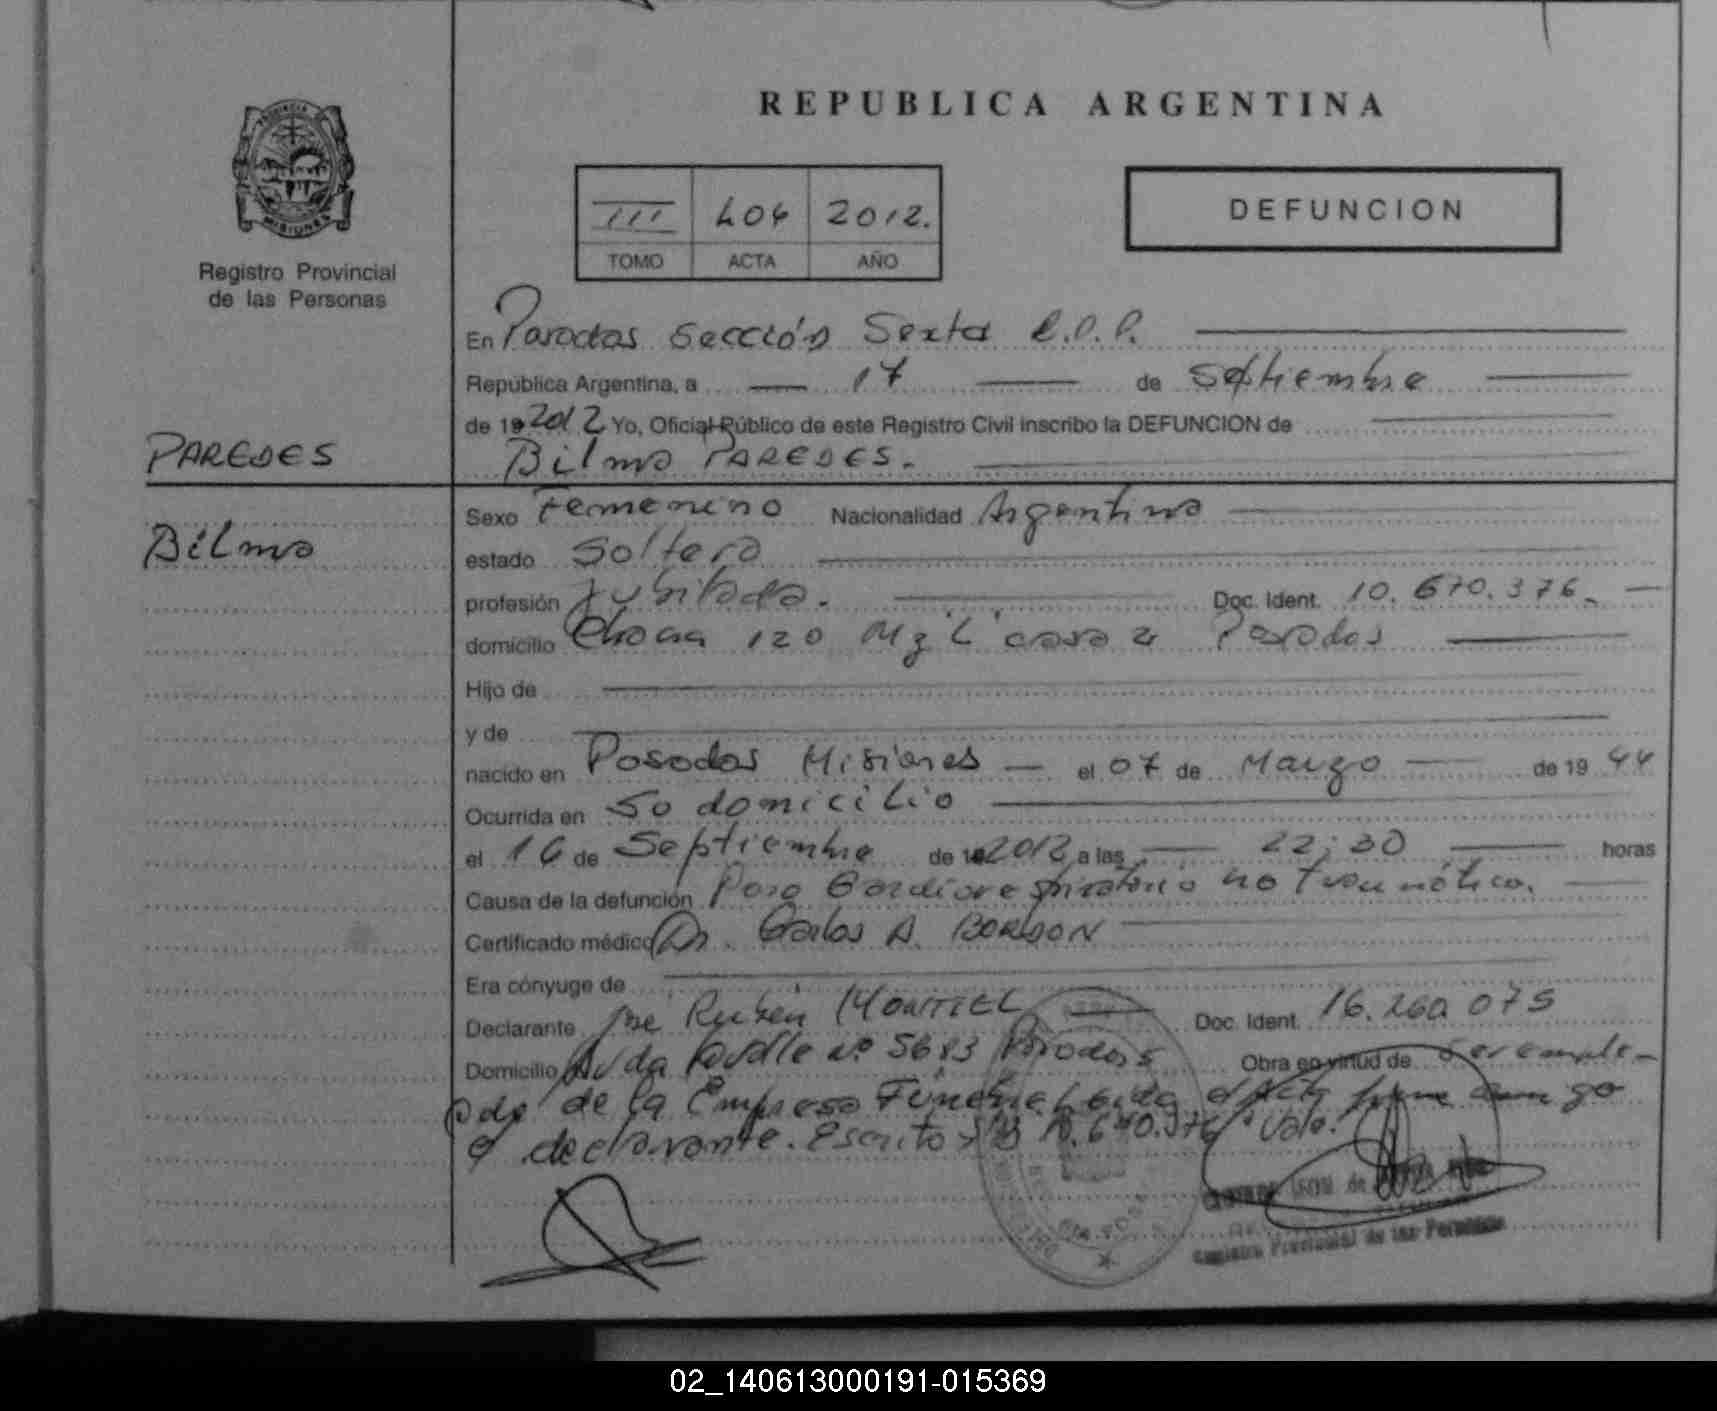 REPUBLICA ARGENTINA
PROVINCIA
MISIONES
Registro Provincial
de las Personas
III 406 2012.
TOMO ACTA AÑO
DEFUNCION
En Posadas Sección Sexta
República Argentina, a 17 de Septiembre
de 19 2012 Yo, Oficial Público de este Registro Civil inscribo la DEFUNCION de
PAREDES
Bilma PAREDES.
Bilma
Sexo Femenino Nacionalidad Argentina
estado Soltera
profesión Jubilada. Doc. Ident. 10.670.376.
domicilio Chacra 120 Mz "L" casa 4 Posadas
Hijo de
y de
nacido en Posadas Misiones el 07 de Marzo de 19 44
Ocurrida en Su domicilio
el 16 de Septiembre de 19 2012 a las 22:30 horas
Causa de la defunción Paro Cardiorespiratorio no traumático.
Certificado médico Dr. Carlos A. BORDON
Era cónyuge de
Declarante José Rubén MONTIEL Doc. Ident. 16.260.075
Domicilio Avda Lavalle Nº 5683 Posadas Obra en virtud de ser emplea-
do de la Empresa Fúnebre Leida el Acta firma conmigo
el declarante. Escrito 10.670.376 Vale.
Registro Provincial de las Personas
02_140613000191-015369